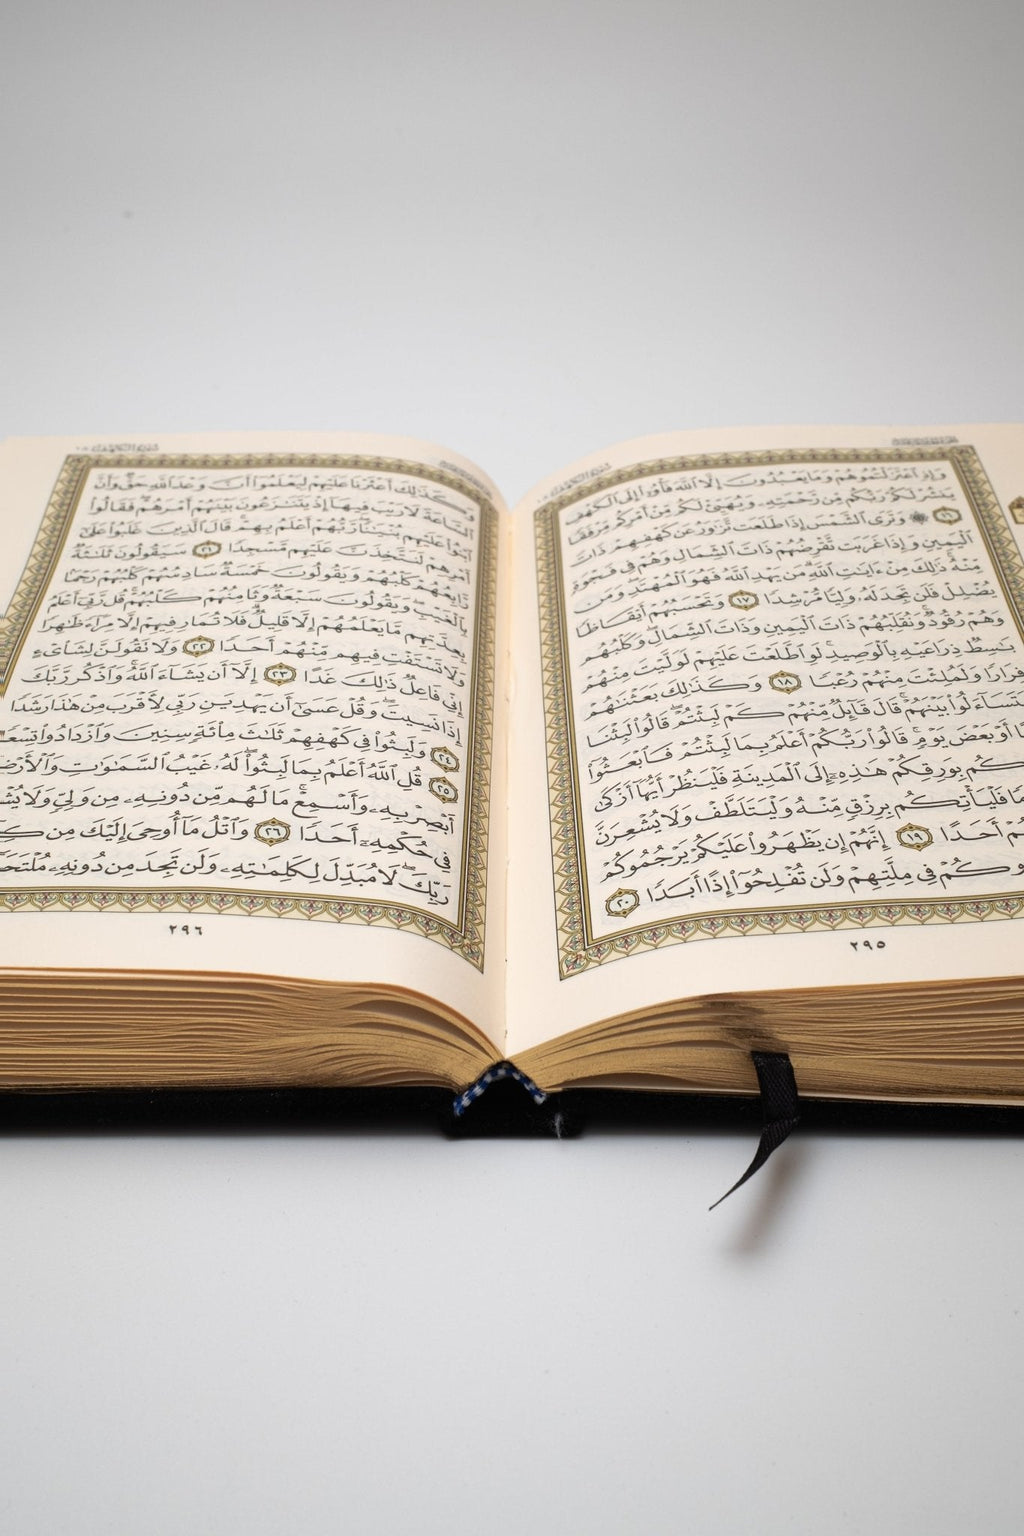 وَإِذِ ٱعۡتَزَلۡتُمُوهُمۡ وَمَا يَعۡبُدُونَ إِلَّا ٱللَّهَ فَأۡوُۥٓاْ إِلَى ٱلۡكَهۡفِ
يَنشُرۡ لَكُمۡ رَبُّكُم مِّن رَّحۡمَتِهِۦ وَيُهَيِّئۡ لَكُم مِّنۡ أَمۡرِكُم مِّرۡفَقٗا
١٦ ۞ وَتَرَى ٱلشَّمۡسَ إِذَا طَلَعَت تَّزَٰوَرُ عَن كَهۡفِهِمۡ ذَاتَ
ٱلۡيَمِينِ وَإِذَا غَرَبَت تَّقۡرِضُهُمۡ ذَاتَ ٱلشِّمَالِ وَهُمۡ فِي فَجۡوَةٖ
مِّنۡهُۚ ذَٰلِكَ مِنۡ ءَايَٰتِ ٱللَّهِۗ مَن يَهۡدِ ٱللَّهُ فَهُوَ ٱلۡمُهۡتَدِۖ وَمَن
يُضۡلِلۡ فَلَن تَجِدَ لَهُۥ وَلِيّٗا مُّرۡشِدٗا ١٧ وَتَحۡسَبُهُمۡ أَيۡقَاظٗا
وَهُمۡ رُقُودٞۚ وَنُقَلِّبُهُمۡ ذَاتَ ٱلۡيَمِينِ وَذَاتَ ٱلشِّمَالِۖ وَكَلۡبُهُم
بَٰسِطٞ ذِرَاعَيۡهِ بِٱلۡوَصِيدِۚ لَوِ ٱطَّلَعۡتَ عَلَيۡهِمۡ لَوَلَّيۡتَ مِنۡهُمۡ
فِرَارٗا وَلَمُلِئۡتَ مِنۡهُمۡ رُعۡبٗا ١٨ وَكَذَٰلِكَ بَعَثۡنَٰهُمۡ
بَيۡنَهُمۡۚ قَالَ قَآئِلٞ مِّنۡهُمۡ كَمۡ لَبِثۡتُمۡۖ قَالُواْ لَبِثۡنَا
أَوۡ بَعۡضَ يَوۡمٖۚ قَالُواْ رَبُّكُمۡ أَعۡلَمُ بِمَا لَبِثۡتُمۡ فَٱبۡعَثُوٓاْ
بِوَرِقِكُمۡ هَٰذِهِۦٓ إِلَى ٱلۡمَدِينَةِ فَلۡيَنظُرۡ أَيُّهَآ أَزۡكَىٰ
فَلۡيَأۡتِكُم بِرِزۡقٖ مِّنۡهُ وَلۡيَتَلَطَّفۡ وَلَا يُشۡعِرَنَّ
أَحَدًا ١٩ إِنَّهُمۡ إِن يَظۡهَرُواْ عَلَيۡكُمۡ يَرۡجُمُوكُمۡ
فِي مِلَّتِهِمۡ وَلَن تُفۡلِحُوٓاْ إِذًا أَبَدٗا ٢٠
٢٩٥
وَكَذَٰلِكَ أَعۡثَرۡنَا عَلَيۡهِمۡ لِيَعۡلَمُوٓاْ أَنَّ وَعۡدَ ٱللَّهِ حَقّٞ وَأَنَّ
ٱلسَّاعَةَ لَا رَيۡبَ فِيهَآ إِذۡ يَتَنَٰزَعُونَ بَيۡنَهُمۡ أَمۡرَهُمۡۖ فَقَالُواْ
ٱبۡنُواْ عَلَيۡهِم بُنۡيَٰنٗاۖ رَّبُّهُمۡ أَعۡلَمُ بِهِمۡۚ قَالَ ٱلَّذِينَ غَلَبُواْ عَلَىٰٓ
أَمۡرِهِمۡ لَنَتَّخِذَنَّ عَلَيۡهِم مَّسۡجِدٗا ٢١ سَيَقُولُونَ ثَلَٰثَةٞ
رَّابِعُهُمۡ كَلۡبُهُمۡ وَيَقُولُونَ خَمۡسَةٞ سَادِسُهُمۡ كَلۡبُهُمۡ رَجۡمَۢا
بِٱلۡغَيۡبِۖ وَيَقُولُونَ سَبۡعَةٞ وَثَامِنُهُمۡ كَلۡبُهُمۡۚ قُل رَّبِّيٓ أَعۡلَمُ
بِعِدَّتِهِم مَّا يَعۡلَمُهُمۡ إِلَّا قَلِيلٞۗ فَلَا تُمَارِ فِيهِمۡ إِلَّا مِرَآءٗ ظَٰهِرٗا
وَلَا تَسۡتَفۡتِ فِيهِم مِّنۡهُمۡ أَحَدٗا ٢٢ وَلَا تَقُولَنَّ لِشَاْيۡءٍ
إِنِّي فَاعِلٞ ذَٰلِكَ غَدًا ٢٣ إِلَّآ أَن يَشَآءَ ٱللَّهُۚ وَٱذۡكُر رَّبَّكَ
إِذَا نَسِيتَ وَقُلۡ عَسَىٰٓ أَن يَهۡدِيَنِ رَبِّي لِأَقۡرَبَ مِنۡ هَٰذَا رَشَدٗا
٢٤ وَلَبِثُواْ فِي كَهۡفِهِمۡ ثَلَٰثَ مِاْئَةٖ سِنِينَ وَٱزۡدَادُواْ
٢٥ قُلِ ٱللَّهُ أَعۡلَمُ بِمَا لَبِثُواْۖ لَهُۥ غَيۡبُ ٱلسَّمَٰوَٰتِ وَٱلۡأَرۡضِ
أَبۡصِرۡ بِهِۦ وَأَسۡمِعۡۚ مَا لَهُم مِّن دُونِهِۦ مِن وَلِيّٖ وَلَا
فِي حُكۡمِهِۦٓ أَحَدٗا ٢٦ وَٱتۡلُ مَآ أُوحِيَ إِلَيۡكَ مِن
رَبِّكَۖ لَا مُبَدِّلَ لِكَلِمَٰتِهِۦ وَلَن تَجِدَ مِن دُونِهِۦ
٢٩٦